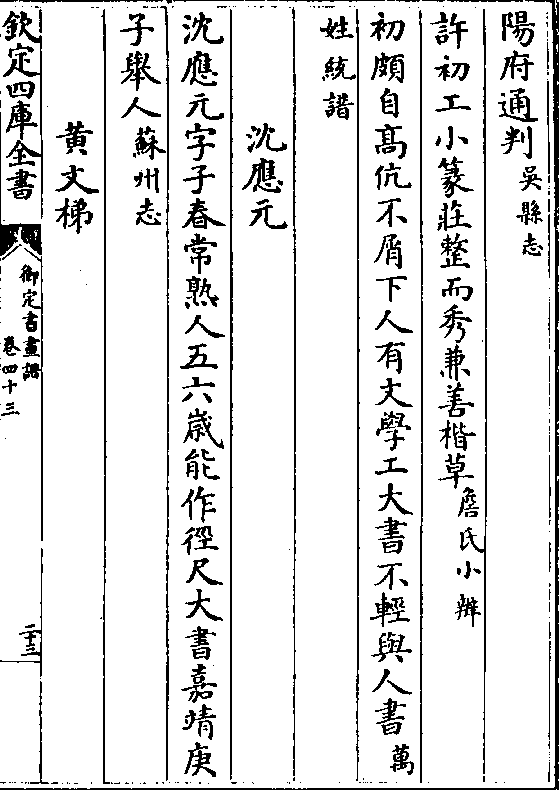 陽府通判吳縣志
許初工小篆莊整而秀兼善楷草詹氏小辨
初頗自髙伉不屑下人有文學工大書不輕與人書萬
姓統譜
沈應元
沈應元字子春常熟人五六歲能作徑尺大書嘉靖庚
子舉人蘇州志
黃文梯
欽定四庫全書
御定書畫譜
卷四十三
二十三